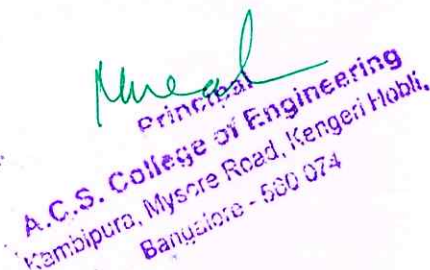 Principal
A.C.S. College of Engineering
Kambipura, Mysore Road, Kengeri Hobli,
Bangalore - 560 074